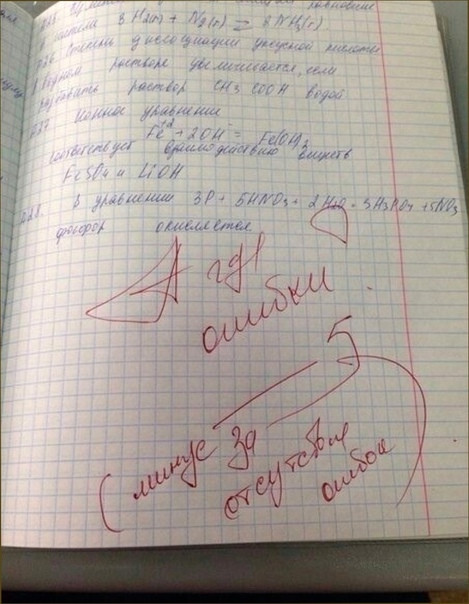 равновесие
3 H₂(г) + N₂(г) ⇄ 2 NH₃(г)
Степень диссоциации уксусной кислоты
в водном растворе увеличивается, если
разбавить раствор CH₃COOH водой
Ионное уравнение
Fe⁺² + 2OH⁻ = Fe(OH)₂
соответствует взаимодействию веществ
FeSO₄ и LiOH
В уравнении 3P + 5HNO₃ + 2H₂O = 3H₃PO₄ + 5NO
фосфор окисляется
А где
ошибки ?
5
(минус за
отсутствие
ошибок)